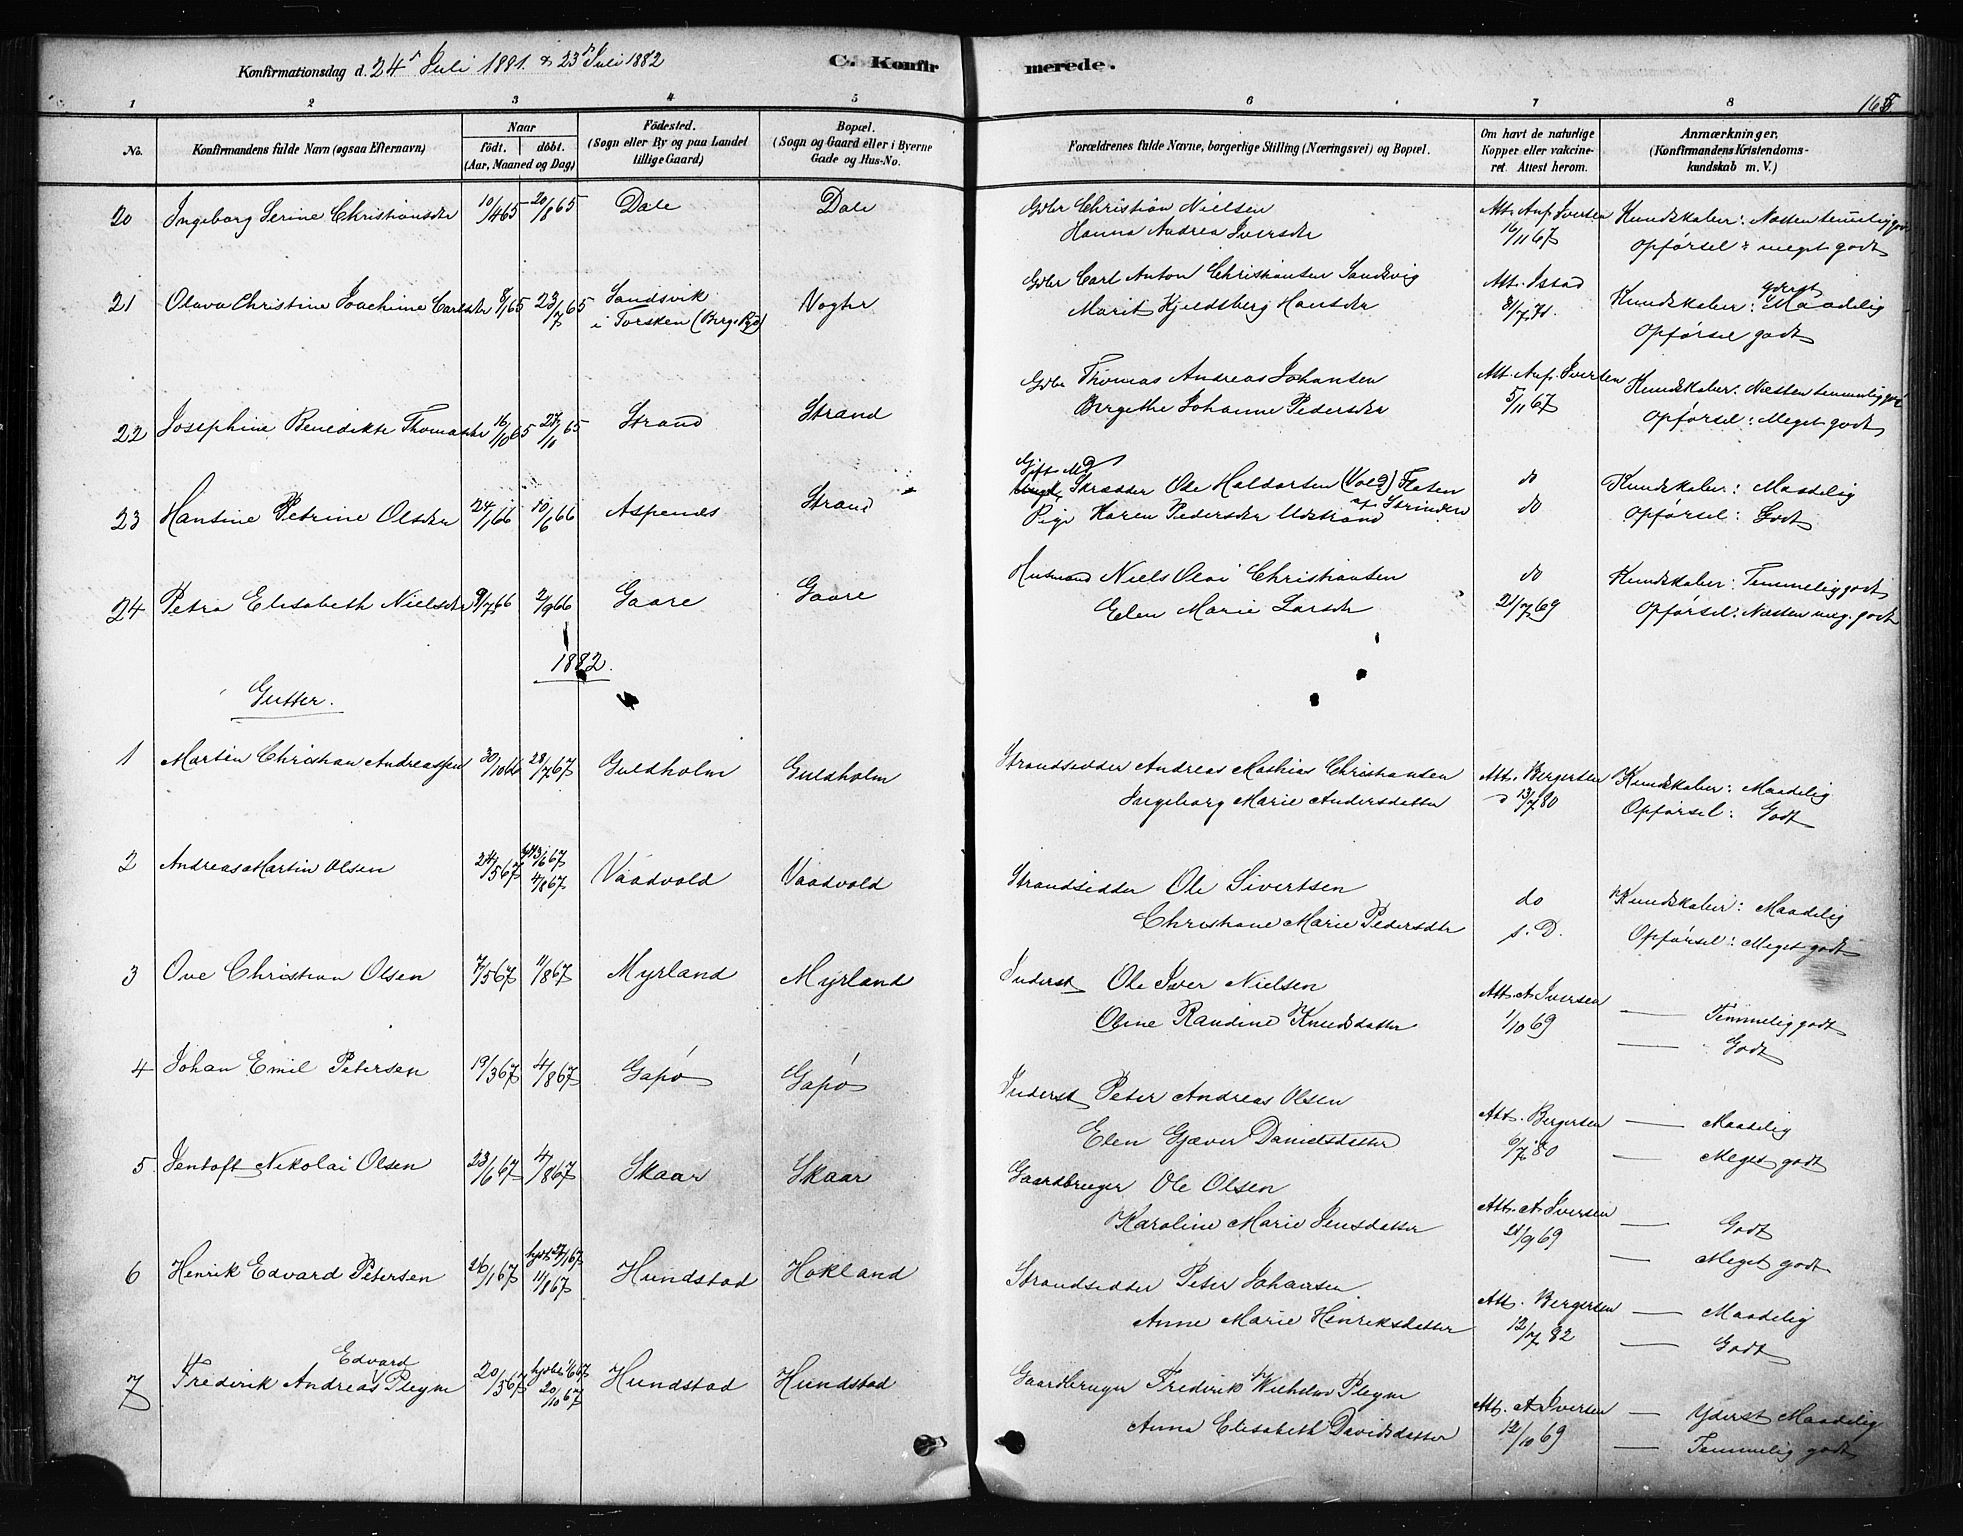 Konfirmationsdag d. 24de Juli 1881 & 23de Juli 1882
C. Konfirmerede.
165
1 2 3 4 5 6 7 8
No.
Konfirmandens fulde Navn (ogsaa Efternavn)
Naar
födt. döbt.
(Aar, Maaned og Dag)
Födested.
(Sogn eller By og paa Landet
tillige Gaard)
Bopæl.
(Sogn og Gaard eller i Byerne
Gade og Hus-No.
Forældrenes fulde Navne, borgerlige Stilling (Næringsvei) og Bopæl.
Om havt de naturlige
Kopper eller vakcine-
ret. Attest herom.
Anmærkninger.
(Konfirmandens Kristendoms-
kundskab m. V.)
20 Ingeborg Serine Christiansdtr 10/4 65 20/8 65 Dale Dale Gdbr Christian Nielsen Att. Anf. Iversen Kundskaber: Næsten temmelig godt
Hanna Andrea Iversdtr 16/11 67 Opførsel: meget godt
21 Olava Christine Joachime Carlsdtr 8/1 65 23/7 65 Sandsvik Vogter Gdbr Carl Anton Christiansen Sandsvig Att. Istad Kundskaber: yderst Maadelig
i Torsken (Bergs Pgd) Marit Kjeldsberg Hansdtr 31/7 71. Opførsel godt
22 Josephine Benedikte Thomasdtr 16/10 65 27/11 65 Strand Strand Gdbr Thomas Andreas Johansen Att. Anf. Iversen Kundskaber: Næsten temmelig godt
Bergethe Johanne Pedersdtr 5/11 67 Opførsel: Meget godt
23 Hansine Petrine Olsdtr 24/1 66 10/6 66 Aspenes Strand Gift Md Skrædder Ole Haldorsen (Vold) Flaten do Kundskaber: Maadelig
af Strinden
Pige Karen Pedersdtr Udstrand do Opførsel: Godt
24 Petra Elisabeth Nielsdtr 9/7 66 2/9 66 Gaare Gaare Husmand Niels Olai Christiansen do Kundskaber: Temmelig godt
Elen Marie Larsdtr 21/7 69 Opførsel: Næsten meg. godt
1882.
Gutter.
1 Martin Christian Andreassen 30/10 66 28/7 67 Guldholm Guldholm Strandsidder Andreas Mathias Christiansen Att. Bergersen Kundskaber: Maadelig
Ingeborg Marie Andersdatter 13/7 80 Opførsel: Godt
2 Andreas Martin Olsen 24/5 67 hjd 13/6 67 4/8 67 Vaadvold Vaadvold Strandsidder Ole Sivertsen do Kundskaber: Maadelig
Christiane Marie Pedersdtr s. D. Opførsel: Meget godt
3 Ove Christian Olsen 7/5 67 11/8 67 Myrland Myrland Inderst Ole Iver Nielsen Att. A. Iversen — Temmelig godt
Oline Randine Knudsdatter 1/10 69 — Godt
4 Johan Emil Petersen 19/3 67 4/8 67 Gapø Gapø Inderst Peter Andreas Olsen Att. Bergersen — Maadelig
Elen Gjæver Danielsdatter 6/7 80 — Meget godt
5 Jentoft Nikolai Olsen 23/6 67 4/8 67 Skaar Skaar Gaardbruger Ole Olsen Att. A. Iversen — Godt
Karoline Marie Jensdatter 21/9 69 — Meget godt
6 Henrik Edvard Petersen 26/1 67 hjdbt 27/1 67 11/8 67 Hundstad Hokland Strandsidder Peter Johansen Att. Bergersen — Maadelig
Anne Marie Henriksdatter 12/7 82 — Godt
7 Frederik Andreas Edvard Pleym 20/5 67 hjdbt 1/6 67 20/10 67 Hundstad Hundstad Gaardbruger Frederik Wilhelm Pleym Att. A. Iversen — Yderst Maadelig
Anna Elisabeth Davidsdatter 12/10 69 — Temmelig godt